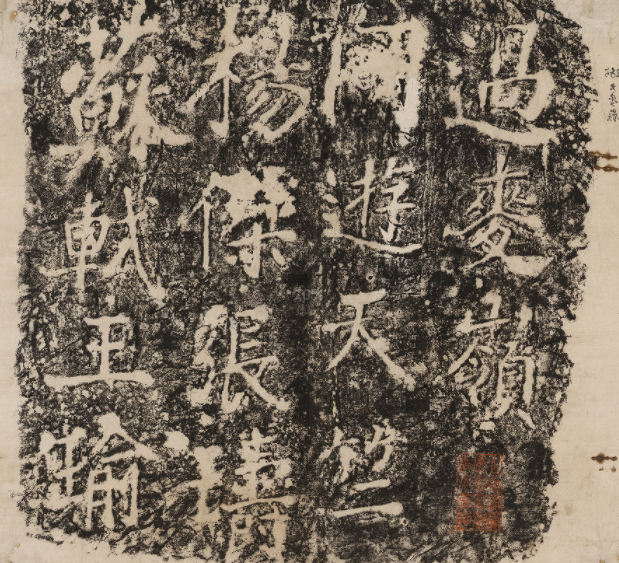 蘇軾王瑜
楊傑張璹
同遊天竺
過麥嶺